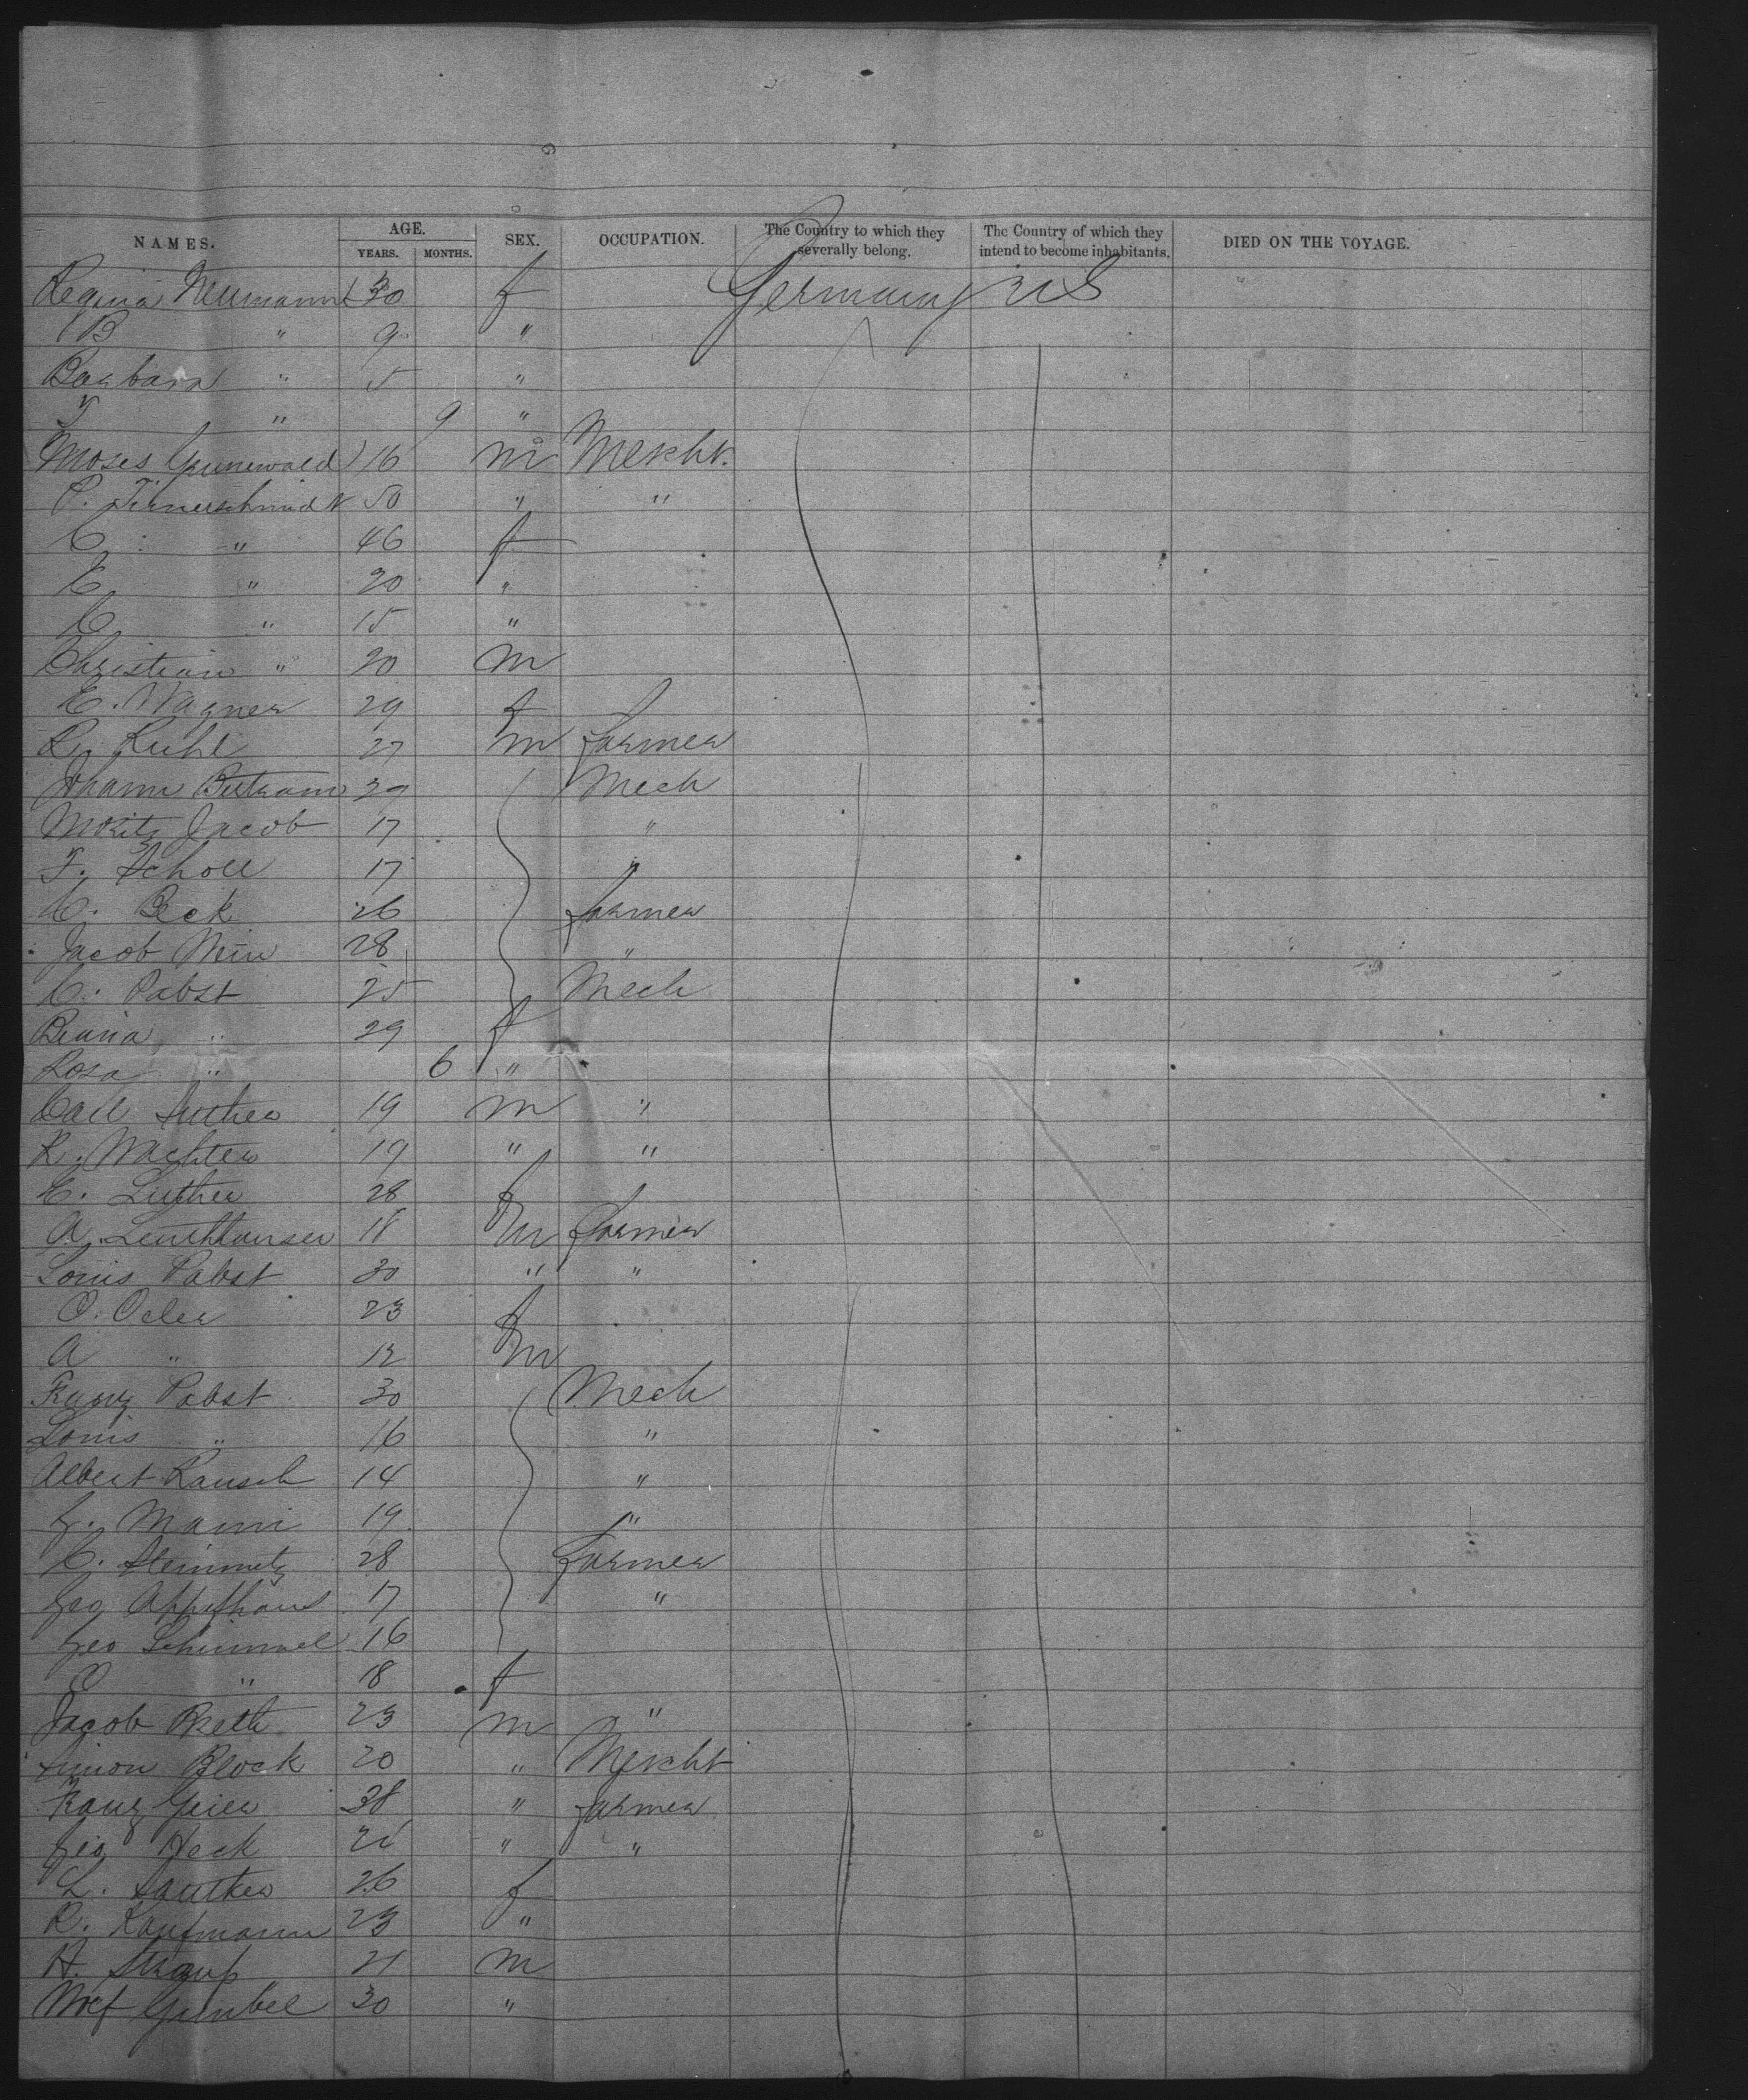 NAMES. AGE. YEARS. MONTHS. SEX. OCCUPATION. The Country to which they severally belong. The Country of which they intend to become inhabitants. DIED ON THE VOYAGE.
Regina Neumann 30 f Germany U S
B " 9 "
Barbara " 5 "
" 9 "
Moses Grunewald 16 m Mercht.
P. 50 " "
C " 46 f
E " 20 "
C " 15 "
Christian " 20 m
E. Wagner 29 f
R. Kuhl 27 m farmer
Johann 29 Mech
Moritz Jacob 17 "
F. Scholl 17 "
C. Beck 26 farmer
Jacob 28 "
C. Pabst 25 Mech
" 29 f
Rosa " 6 "
Carl Luther 19 m "
R. Wachter 19 " "
E. Luther 28 f
A. 18 m farmer
Louis Pabst 30 " "
O. 23 f
A " 12 m
Franz Pabst 30 Mech
Louis " 16 "
Albert Rausch 14 "
G. Mann 19 "
C. Steinmetz 28 farmer
Geo 17 "
Geo Schimmel 16
" 18 f
Jacob 23 m "
Simon Block 20 " Mercht
Franz Geier 38 " farmer
Geo Heck " "
L. 26 f
R. Kaufmann 23 "
H. 21 m
Gimbel 30 "